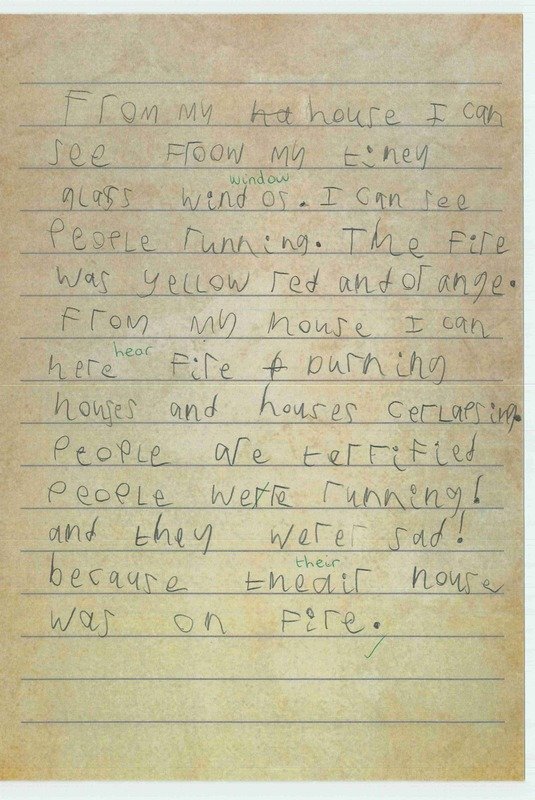 From my ha house I can
see froow my tiney
window
glass windos. I can see
People running. The Fire
was yellow red and orange.
From my house I can
hear
here fire f burning
houses and houses cerlapsing.
People are terrified
people werre running!
and they werer sad!
their
because thedir house
was on fire.